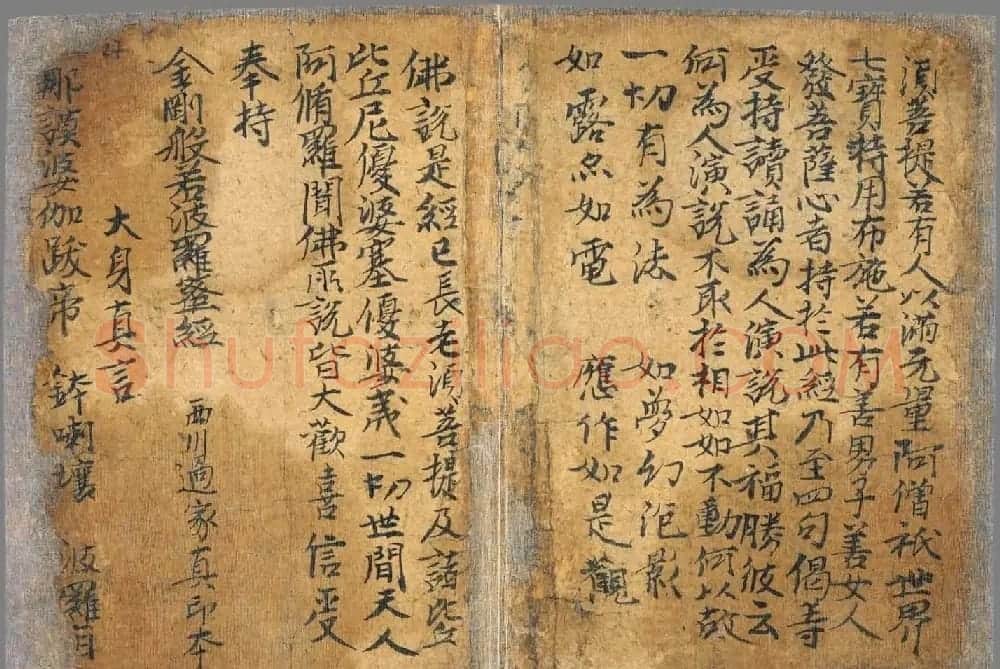 須菩提若有人以滿无量阿僧祇世界
七寶持用布施若有善男子善女人
發菩薩心者持於此經乃至四句偈等
受持讀誦為人演說其福勝彼云
何為人演說不取於相如如不動何以故
一切有為法 如夢幻泡影
如露亦如電 應作如是觀
佛說是經已長老須菩提及諸比丘
比丘尼優婆塞優婆夷一切世間天人
阿脩羅聞佛所說皆大歡喜信受
奉持
金剛般若波羅蜜經 西川過家真印本
大身真言
那謨婆伽跋帝 鉢喇壤 波羅
Shufaziliao.COM